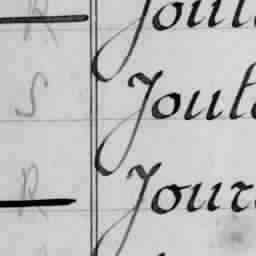 R Joul
S Joul
R Jour